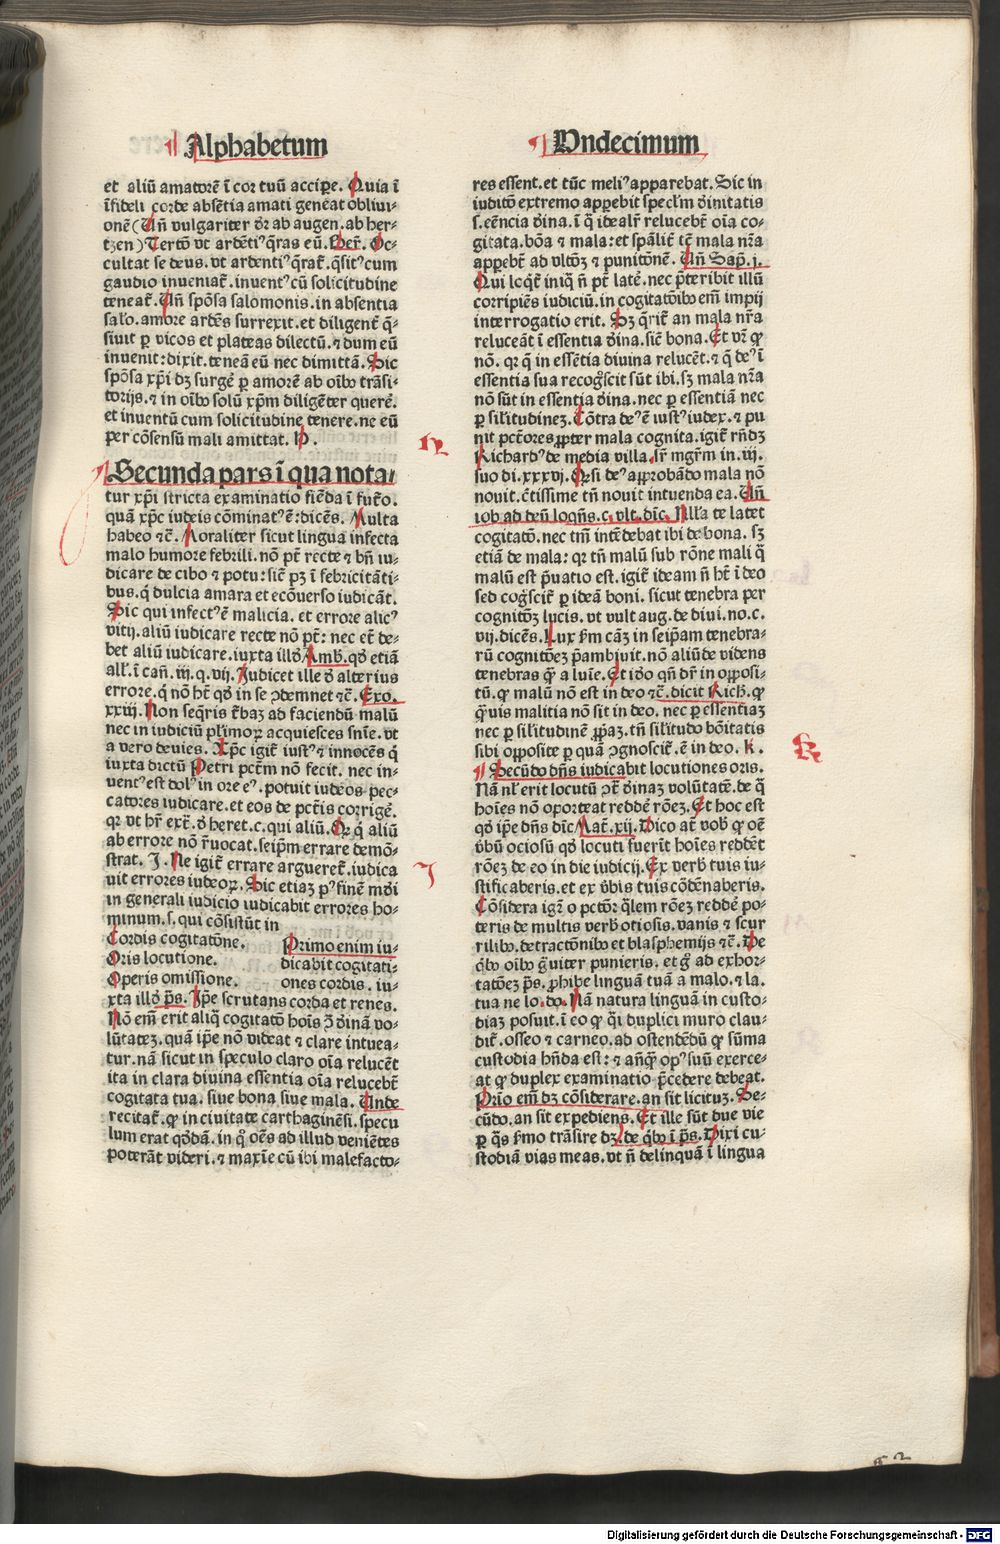 Alphabetum
et aliū amatorē ī cor tuū acciꝑe. Quia ī
īfideli corde absētia amati geneat obliui-
onē (Uñ vulgariter dr̄ ab augen. ab her-
tzen) Tertō vt ardēti⁹ q̄ras eū. Ber̄. Oc-
cultat se deus. vt ardenti⁹ q̄rat̄. q̄sit⁹ cum
gaudio inueniat̄. inuent⁹ cū solicitudine
teneat̄. Uñ spōsa salomonis. in absentia
salo. amore ardēs surrexit. et diligent̄ q̄-
siuit ꝑ vicos et plateas dilectū. ⁊ dum eū
inuenit: dixit. teneā eū nec dimittā. Sic
spōsa xp̄i dꝫ surgē ꝑ amorē ab oībꝰ trāsi-
torijs. ⁊ in oībꝰ solū xp̄m diligēter querē.
et inuentū cum solicitudine tenere. ne eū
per cōsensū mali amittat. H.
Secunda pars ī qua nota-
tur xp̄i stricta examinatio fiēda ī fut̄o.
quā xp̄c iudeis cōminat⁹ ē: dicēs. Multa
habeo ⁊c̄. Moraliter sicut lingua infecta
malo humore febrili. nō pt̄ recte ⁊ bn̄ iu-
dicare de cibo ⁊ potu: sic̄ pꝫ ī febricitāti-
bus. q̄ dulcia amara et ecōuerso iudicāt.
Sic qui infect⁹ ē malicia. et errore alic⁹
vitij. aliū iudicare recte nō pt̄: nec et̄ de-
bet aliū iudicare. iuxta illd̄ Amb. qd̄ etiā
all̄. ī cañ. iij. q. vij. Iudicet ille d̄ alterius
errore. q̄ nō ht̄ qd̄ in se ↄdemnet ⁊c̄. Exo.
xxiij. Non seq̄ris t̄baꝫ ad faciendū malū
nec in iudiciū pl̄imoꝝ acquiesces sn̄ie. vt
a vero deuies. Xp̄c igit̄ iust⁹ ⁊ innocēs q̄
iuxta dictū Petri pct̄m nō fecit. nec in-
vent⁹ est dol⁹ in ore e⁹. potuit iudeos pec-
catores iudicare. et eos de pct̄is corrigē.
qꝛ vt hr̄ ext̄. d̄ heret. c. qui aliū. Qꝛ q̄ aliū
ab errore nō r̄uocat. seip̄m errare demō-
strat. I. Ne igit̄ errare argueret̄. iudica
uit errores iudeoꝝ. Sic etiaꝫ p⁹ finē mūdi
in generali iudicio iudicabit errores ho-
minum. s. qui cōsistūt in
Cordis cogitatōne.
Oris locutione.
Operis omissione.
Primo enim iu-
dicabit cogitati-
ones cordis. iu-
xta illd̄ p̄s. Ip̄e scrutans corda et renes.
Nō em̄ erit aliq̄ cogitatō hoīs ↄ̄ d̄inā vo-
lūtateꝫ. quā ip̄e nō videat ⁊ clare intuea-
tur. nā sicut in speculo claro oīa relucēt
ita in clara diuina essentia oīa relucebt̄
cogitata tua. siue bona siue mala. Unde
recitat̄. ꝙ in ciuitate carthaginēsi. specu
lum erat qd̄dā. in q̊ oēs ad illud veniētes
poterāt videri. ⁊ maxīe cū ibi malefacto-
H
I
Undecimum
res essent. et tūc meli⁹ apparebat. Sic in
iuditō extremo apꝑebit specl̄m d̄initatis
s. eēncia d̄ina. ī q̄ idealr̄ relucebt̄ oīa co-
gitata. bōa ⁊ mala: et spālit̄ tē mala nr̄a
apꝑebt̄ ad vltōꝫ ⁊ punitōnē. Uñ Sap. j.
Qui loq̄t̄ iniq̄ ñ pt̄ latē. nec p̄teribit illū
corripiēs iudiciū. in cogitatōibꝰ em̄ impij
interrogatio erit. Sꝫ q̄rit̄ an mala nr̄a
reluceāt ī essentia d̄ina. sic̄ bona. Et vr̄ ꝙ
nō. qꝛ q̄ in essētia diuina relucēt. ⁊ q̄ de⁹ ī
essentia sua recogscit sūt ibi. sꝫ mala nr̄a
nō sūt in essentia d̄ina. nec ꝑ essentiā nec
ꝑ silitudineꝫ. Cōtra de⁹ ē iust⁹ iudex. ⁊ pu
nit pct̄ores ꝓpter mala cognita. igit̄ rn̄dꝫ
Richard⁹ de media villa. sr̄ mgr̄m in. iij.
suo di. xxxvj. Qsi de⁹ aꝓrobādo mala nō
nouit. c̄tissime tn̄ nouit intuenda ea. Uñ
iob ad deū loqn̄s. c. vlt. dīc. Nll̄a te latet
cogitatō. nec tm̄ intēdebat ibi de bona. sꝫ
etiā de mala: qꝛ tn̄ malū sub rōne mali q̄
malū est p̄uatio est. igit̄ ideam ñ ht̄ ī deo
sed cogscit̄ ꝑ ideā boni. sicut tenebra per
cognitōꝫ lucis. vt vult aug. de diui. no. c.
vij. dicēs. Lux s̄m cāꝫ in seip̄am tenebra-
rū cognitōeꝫ p̄ambiuit. nō aliūde videns
tenebras q̄ a luīe. Et idō qn̄ dr̄ in oꝓosi-
tū. ꝙ malū nō est in deo ⁊c̄. dicit Rich. ꝙ
q̄uis malitia nō sit in deo. nec ꝑ essentiaꝫ
nec ꝑ silitudinē ꝓp̄aꝫ. tn̄ silitudo bōitatis
sibi oꝓosite ꝑ quā ↄgnoscit̄. ē in deo. K.
Secūdo dn̄s iudicabit locutiones oris.
Nā nl̄ erit locutū ↄt̄ d̄inaꝫ volūtatē. de q̄
hoīes nō oporteat reddē rōeꝫ. Et hoc est
qd̄ ip̄e dn̄s dīc Mat̄. xij. Dico at̄ vob ꝙ oē
v̄bū ociosū qd̄ locuti fuerīt hoīes reddēt
rōeꝫ de eo in die iudicij. Ex verb tuis iu-
stificaberis. et ex v̄bis tuis cōdēnaberis.
Cōsidera igꝉ o pctōr: q̄lem rōeꝫ reddē po-
teris de multis verb otiosis. vanis ⁊ scur
rilibꝰ. detractōnibꝰ et blasphemijs ⁊c̄. De
q̄bꝰ oībꝰ g̊uiter punieris. et g̊ ad exhor-
tatōeꝫ p̄s. ꝓhibe linguā tuā a malo. ⁊ la.
tua ne lo. do. Nā natura linguā in custo-
diaꝫ posuit. ī eo ꝙ q̄i duplici muro clau-
dit̄. osseo ⁊ carneo. ad ostendēdū ꝙ sūma
custodia hn̄da est: ⁊ anq̄ꝙ op⁹ suū exerce-
at ꝙ duplex examinatio p̄cedere debeat.
Prīo em̄ dꝫ cōsiderare. an sit licituꝫ. Se-
cūdo. an sit expediens. Et ille sūt due vie
ꝑ q̄s s̄mo trāsire dꝫ. de q̄bꝰ ī p̄s. Dixi cu-
stodiā vias meas. vt ñ delinquā ī lingua
K
Digitalisierung gefördert durch die Deutsche Forschungsgemeinschaft - DFG